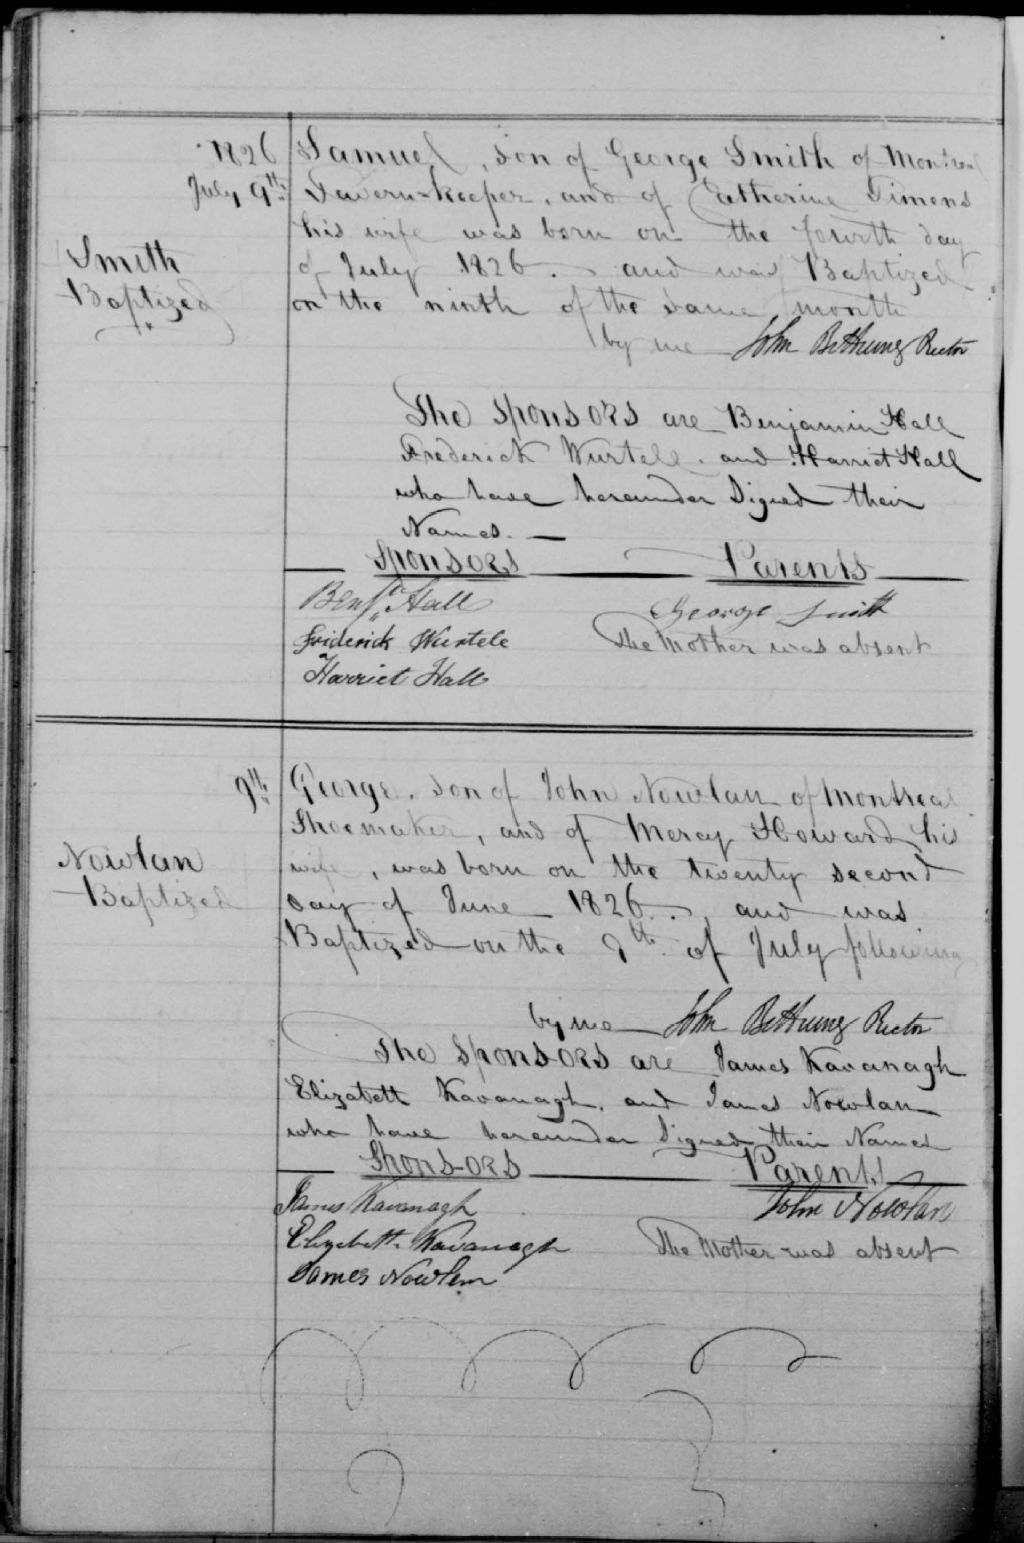 1826
July 9th
Smith
Baptized
Samuel, son of George Smith of Montreal
Tavern-keeper, and of Catherine Timens
his wife was born on the fourth day
of July 1826. and was Baptized
on the ninth of the same month
by me John Bethune Rector
The Sponsors are Benjamin Hall
Frederick Wurtell. and Harriet Hall
who have hereunder Signed their
Names. —
Sponsors Parents
Benjn Hall George Smith
Friderick Wurtele The Mother was absent
Harriet Hall
9th
Nowlan
Baptized
George, son of John Nowlan of Montreal
Shoemaker, and of Mercy Howard his
wife, was born on the twenty second
day of June 1826., and was
Baptized on the 9th of July following
by me John Bethune Rector
The Sponsors are James Kavanagh
Elizabeth Kavanagh. and James Nowlan
who have hereunder Signed their Names
Sponsors Parents
James Kavanagh John Nowlan
Elizabeth Kavanagh The Mother was absent
James Nowlen